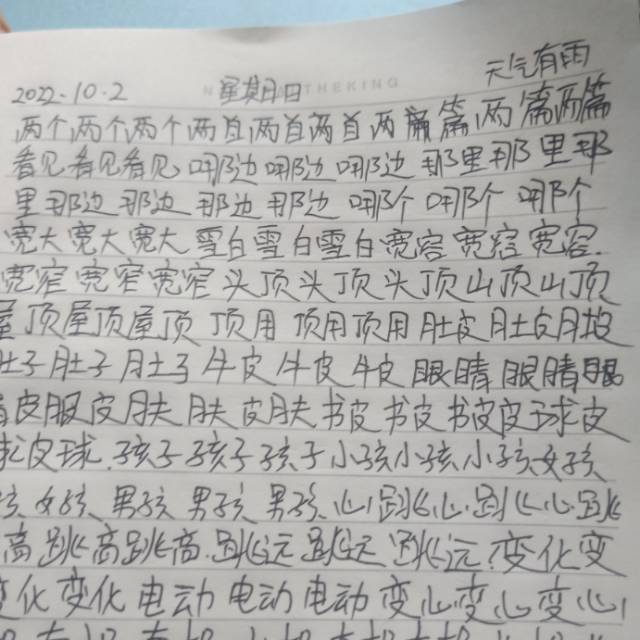 2022.10.2 星期日 天气有雨
N THEKING
两个两个两个两首两首两首两篇篇两篇两篇
看见看见看见哪边哪边哪边那里那里那
里那边那边那边那边哪个哪个哪个
宽大宽大宽大雪白雪白雪白宽容宽容宽容.
宽窄宽窄宽窄头顶头顶头顶山顶山顶
顶屋顶屋顶顶用顶用顶用肚皮肚皮肚皮
子肚子肚子牛皮牛皮牛皮眼睛眼睛眼
皮肤皮肤肤皮肤书皮书皮书皮皮球皮
球皮球.孩子孩子孩子小孩小孩小孩女孩
孩女孩、男孩男孩、男孩、心跳心跳心跳
高跳高跳高.跳远跳远跳远.变化变
化变化电动电动电动变心变心变心